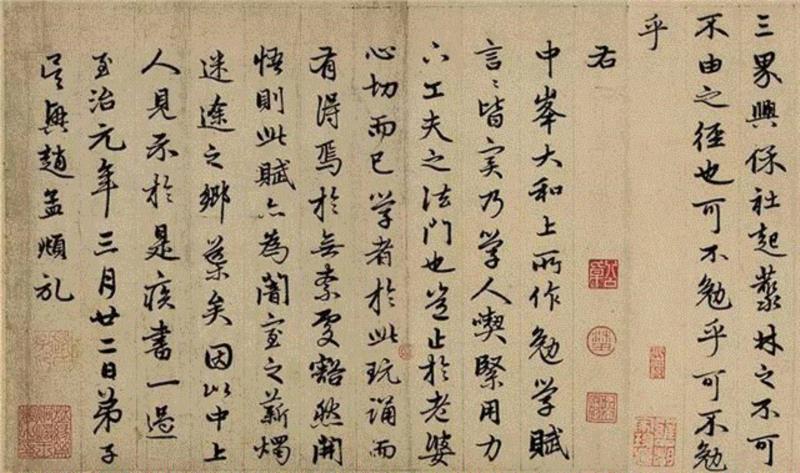 三界興保社起叢林之不可
不由之徑也可不勉乎可不勉
乎
右
中峯大和上所作勉学賦
言〻皆实乃学人喫緊用力
下工夫之法門也豈止於老婆
心切而已学者於此玩誦而
有得焉於無索處豁然開
悟則此賦亦為闇室之薪燭
迷途之鄉矣因以中上
人見示於是疾書一過
至治元年三月廿二日弟子
吳興趙孟頫礼